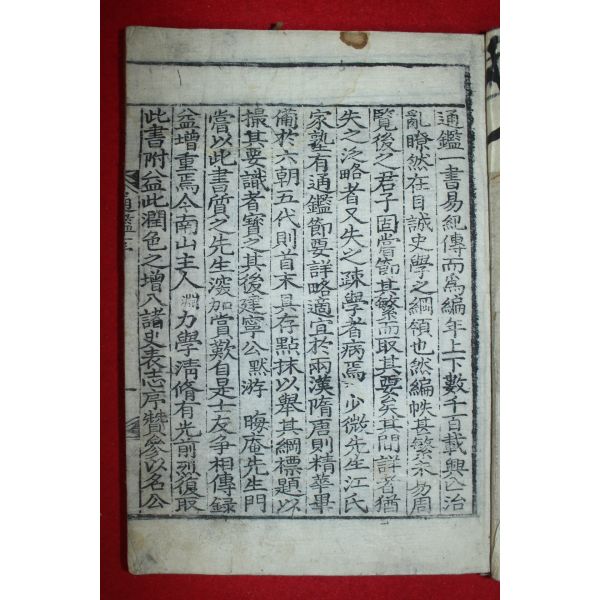 通鑑一書易紀傳而爲編年上下數千百載興亡治
亂瞭然在目誠史學之綱領也然編帙甚繁未易周
覽後之君子固嘗節其繁而取其要矣其間詳者猶
失之泛略者又失之疎學者病焉少微先生江氏
家塾有通鑑節要詳略適宜於兩漢隋唐則精華畢
備於六朝五代則首末具存點抹以舉其綱標題以
撮其要識者寶之其後建寧公默游晦庵先生門
嘗以此書質之先生深加賞歎自是士友爭相傳錄
益增重焉今南山主人淵力學清脩有先前烈復取
此書附益此潤色之增入諸史表志序贊參以名公
通鑑序